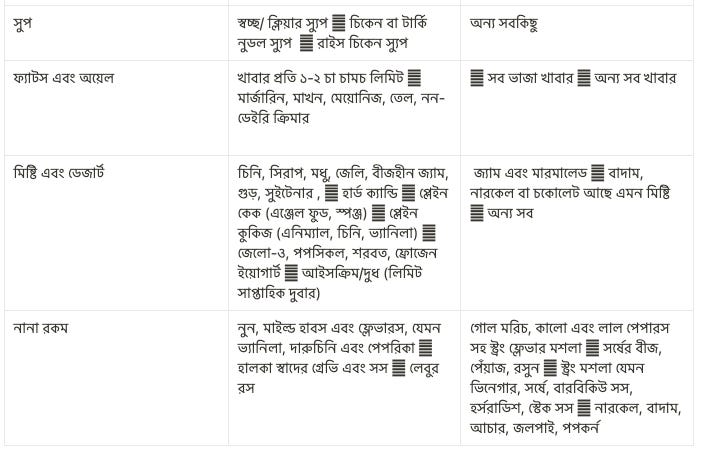 সুপ
স্বচ্ছ/ ক্লিয়ার স্যুপ ䷁ চিকেন বা টার্কি
নুডল স্যুপ ䷁ রাইস চিকেন স্যুপ
অন্য সবকিছু
ফ্যাটস এবং অয়েল
খাবার প্রতি ১-২ চা চামচ লিমিট ䷁
মার্জারিন, মাখন, মেয়োনিজ, তেল, নন-
ডেইরি ক্রিমার
䷁ সব ভাজা খাবার ䷁ অন্য সব খাবার
মিষ্টি এবং ডেজার্ট
চিনি, সিরাপ, মধু, জেলি, বীজহীন জ্যাম,
গুড়, সুইটেনার , ䷁ হার্ড ক্যান্ডি ䷁ প্লেইন
কেক (এঞ্জেল ফুড, স্পঞ্জ) ䷁ প্লেইন
কুকিজ (এনিম্যাল, চিনি, ভ্যানিলা) ䷁
জেলো-ও, পপসিকল, শরবত, ফ্রোজেন
ইয়োগার্ট ䷁ আইসক্রিম/দুধ (লিমিট
সাপ্তাহিক দুবার)
জ্যাম এবং মারমালেড ䷁ বাদাম,
নারকেল বা চকোলেট আছে এমন মিষ্টি
䷁ অন্য সব
নানা রকম
নুন, মাইল্ড হাবস এবং ফ্লেভারস, যেমন
ভ্যানিলা, দারুচিনি এবং পেপরিকা ䷁
হালকা স্বাদের গ্রেভি এবং সস ䷁ লেবুর
রস
গোল মরিচ, কালো এবং লাল পেপারস
সহ স্ট্রং ফ্লেভার মশলা ䷁ সর্ষের বীজ,
পেঁয়াজ, রসুন ䷁ স্ট্রং মশলা যেমন
ভিনেগার, সর্ষে, বারবিকিউ সস,
হর্সরাডিশ, স্টেক সস ䷁ নারকেল, বাদাম,
আচার, জলপাই, পপকর্ন